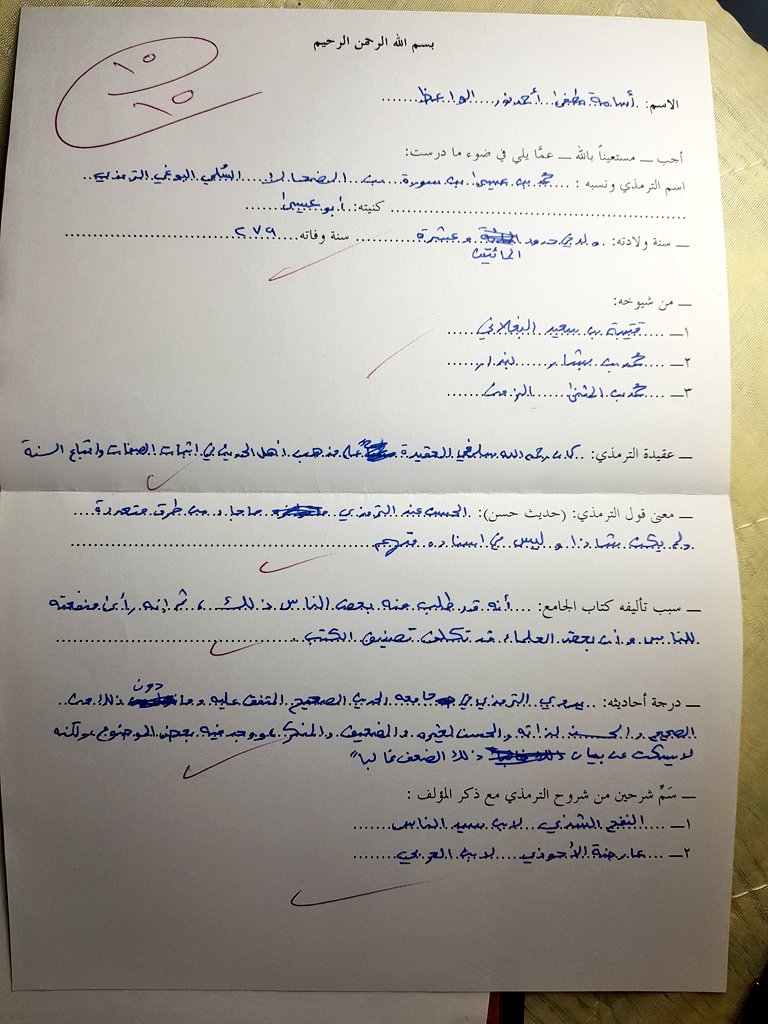 بسم الله الرحمن الرحيم
١٠
١٠
الاسم: أسامة مصطفى أحمد نور الواعظ
أجب ــ مستعيناً بالله ــ عمَّا يلي في ضوء ما درست:
اسم الترمذي ونسبه: محمد بن عيسى بن سورة بن الضحاك السُلمي البوغي الترمذي
كنيته: أبو عيسى
ــ سنة ولادته: ولد في حدود وعشرة سنة وفاته ٢٧٩
المائتين
ــ من شيوخه:
١ــ قتيبة بن سعيد البغلاني
٢ــ محمد بن بشار بندار
٣ــ محمد بن المثنى الزمن
ــ عقيدة الترمذي: كان رحمه الله سلفي العقيدة على مذهب أهل الحديث في إثبات الصفات واتباع السنة
ــ معنى قول الترمذي: (حديث حسن): الحسن عند الترمذي ما جاء من طرق متعددة
ولم يكن شاذا وليس في إسناده متهم
ــ سبب تأليفه كتاب الجامع: أنه قد طلب منه بعض الناس ذلك، ثم إنه رأى منفعته
للناس وأن بعض العلماء قد تكلف تصنيف الكتب
ــ درجة أحاديثه: يروي الترمذي في جامعه الحديث الصحيح المتفق عليه وما دون ذلك من
الصحيح والحسن لذاته والحسن لغيره والضعيف والمنكر، ووجد فيه بعض الموضوع، ولكنه
لا يسكت عن بيان ذلك الضعف غالباً
ــ سَمِّ شرحين من شروح الترمذي مع ذكر المؤلف:
١ــ النفح الشذي لابن سيد الناس
٢ــ عارضة الأحوذي لابن العربي